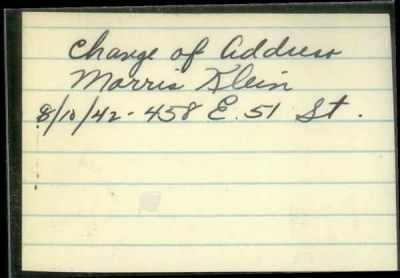 Change of Address
Morris Klein
8/10/42 - 458 E. 51 St.